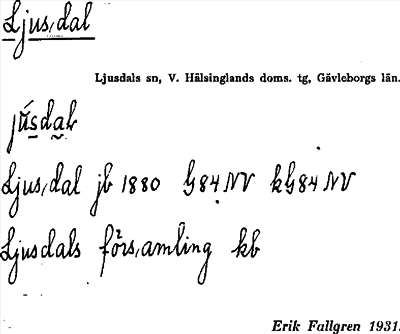 Ljus,dal
Ljusdals sn, V. Hälsinglands doms. tg, Gävleborgs län.
Ljus,dal jb 1880 G84NV kG84NV
Ljusdals förs,amling kb
Erik Fallgren 1931.